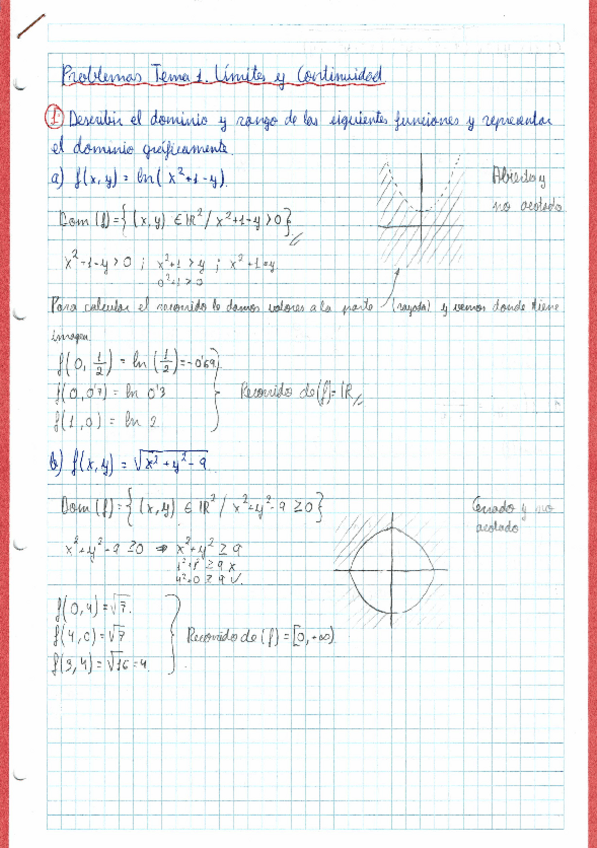 Problemas Tema 1. Límites y Continuidad
1 Describir el dominio y rango de las siguientes funciones y representar
el dominio gráficamente.
a) f(x,y) = ln(x²+1-y).
Abierto y
no acotado
Dom (f) = { (x,y) ∈ IR² / x²+1-y > 0 }
x²-1-y > 0 ; x²+1 > y ; x²+1=y
0²+1 > 0
Para calcular el recorrido le damos valores a la parte (rayada) y vemos donde tiene
imagen.
f(0, 1/2) = ln (1/2) = -0'69
f(0,0'7) = ln 0'3
f(1,0) = ln 2
Recorrido de (f) = IR
b) f(x,y) = √x²+y²-9
Dom (f) = { (x,y) ∈ IR² / x²+y²-9 ≥ 0 }
Cerrado y no
acotado
x²+y²-9 ≥ 0 ⇒ x²+y² ≥ 9
1²+1² ≥ 9 x
4²+0 ≥ 9 ✓.
f(0,4) = √7.
f(4,0) = √7
f(3,4) = √16 = 4.
Recorrido de (f) = [0,+∞)